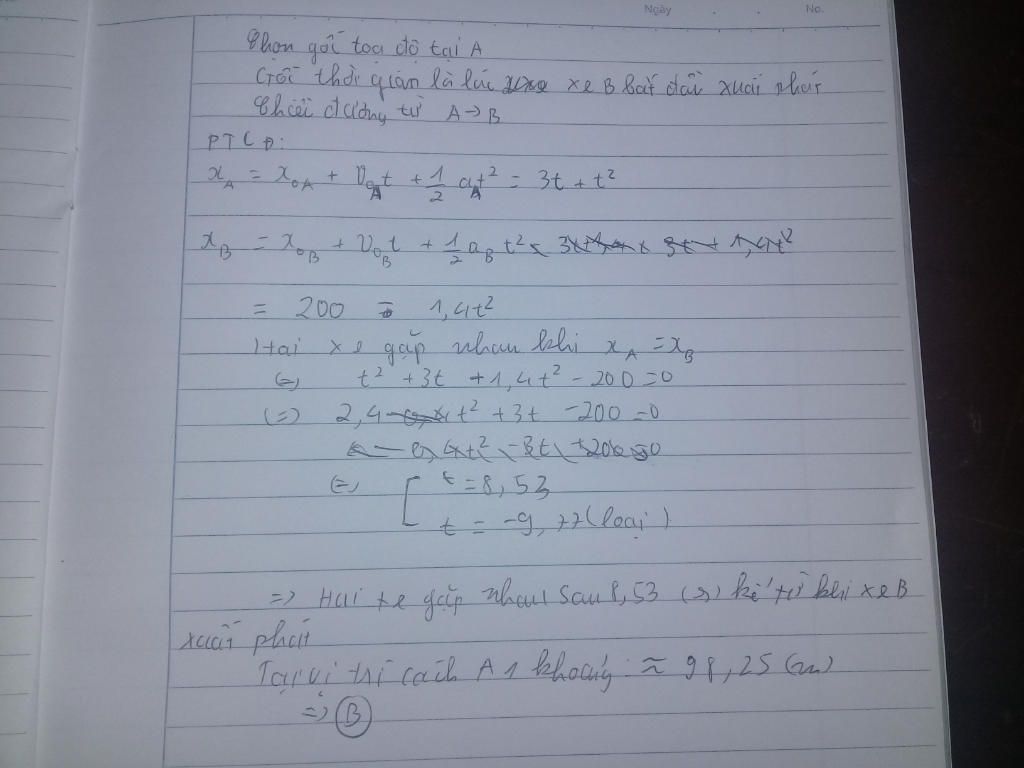 Ngày . . No.
Chọn gốc toạ độ tại A
Gốc thời gian là lúc xe B bắt đầu xuất phát
Chiều dương từ A → B
PTCĐ:
x_A = x_{0A} + v_{0A}t + 1/2 a_A t² = 3t + t²
x_B = x_{0B} + v_{0B}t + 1/2 a_B t²
= 200 - 1,4t²
Hai xe gặp nhau khi x_A = x_B
(=) t² + 3t + 1,4t² - 200 = 0
(=) 2,4 t² + 3t - 200 = 0
(=) [ t = 8,53
t = -9,77 (loại)
=> Hai xe gặp nhau sau 8,53 (s) kể từ khi xe B
xuất phát
Tại vị trí cách A 1 khoảng ≈ 98,25 (m)
=> B